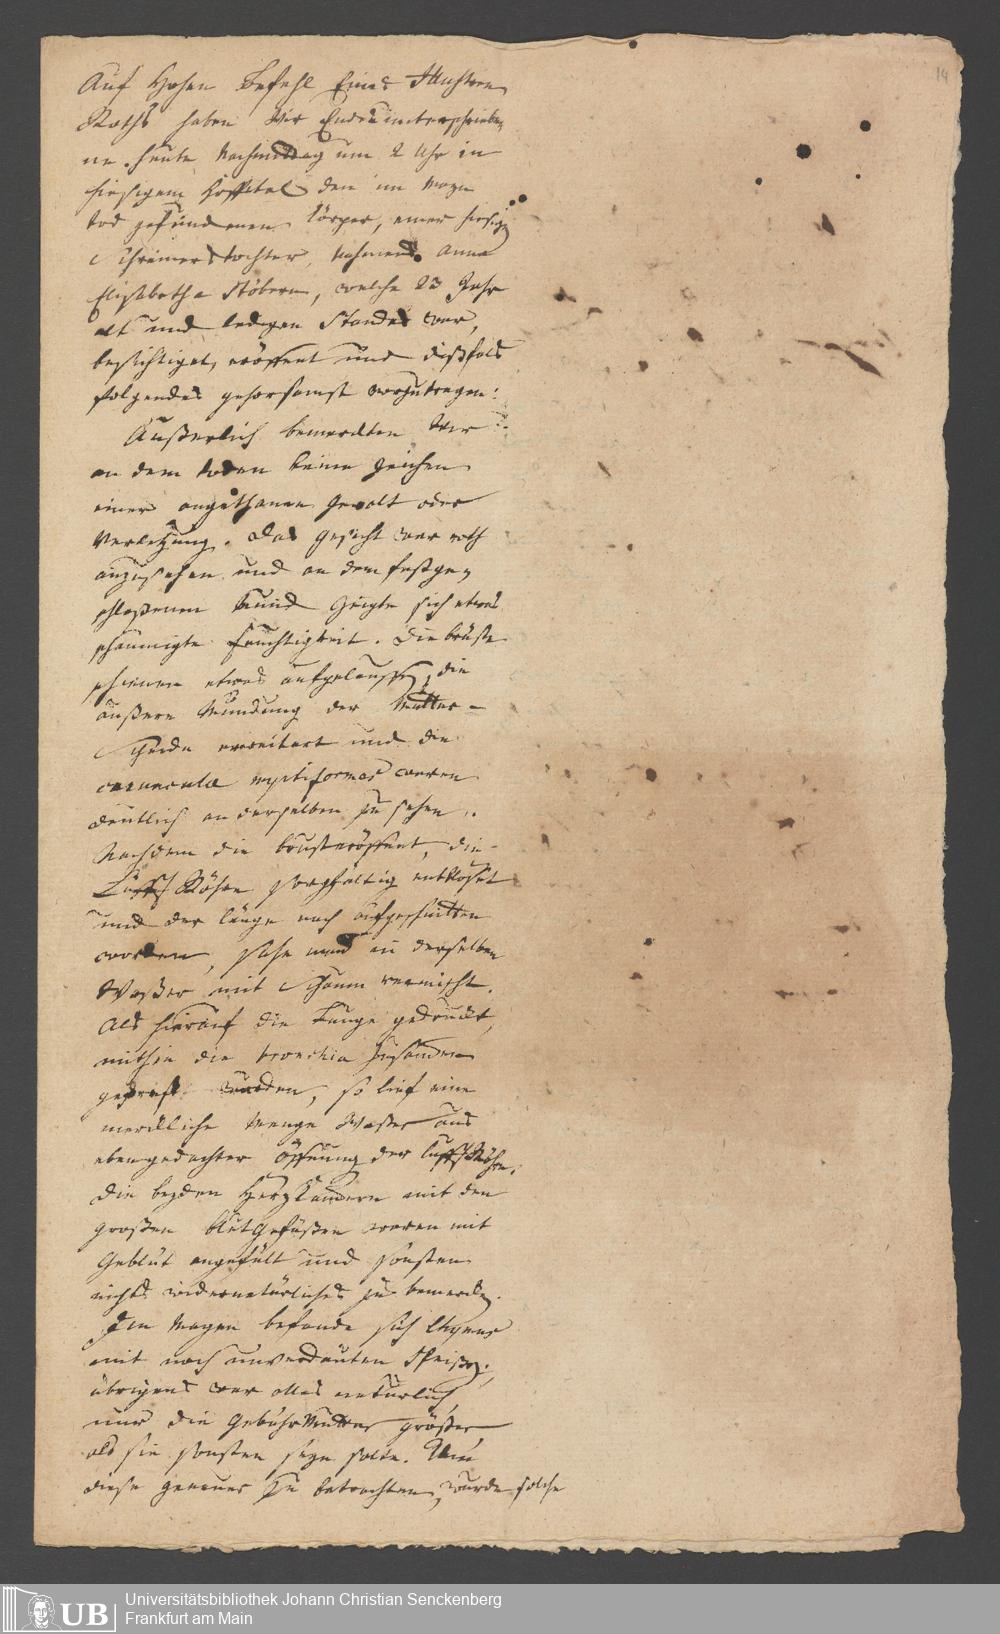 Auf Hohen Befehl Eines Illustren
Raths haben Wir Endes unterschriebe,
ne heute Nachmittag um 2 Uhr in
hiesigem Hospital den im Mayn
tod gefundenen Cörper, einer hiesig
Schreinerstochter, Nahmens Anna
Elisabetha Stöbern, welche 23 Jahr
alt und ledigen Standes war,
besichtiget, eröffnet und dißfals
folgendes gehorsamst vorzutragen:
Äußerlich bemerckten Wir
an dem toden keine Zeichen
einer angethanen Gewalt oder
Verletzung. Das Gesicht war roth
anzusehen und an dem festge,
schloßenen Mund Zeigte sich etwas
schäumigte feuchtigkeit. Die brüste
schienen etwas aufgelauffen, die
äußere Mündung der Mutter-
Scheide erweitert und die
carunculæ myrtiformes waren
deutlich an derselben zu sehen.
Nachdem die brust eröffnet, die
Lufft Röhre sorgfältig entblöset
und der länge nach aufgeschnitten
worden, sahe man in derselben
Waßer mit Schaum vermischt.
Als hierauf die Lunge gedruckt,
mithin die bronchia Zusammen
gepreßt wurden, so lief eine
merckliche Menge Waßer aus
ebengedachter öffnung der LufftRöhre.
Die beyden HerzKammern mit den
großen blutGefäßen waren mit
Geblüt angefült und sonsten
nichts widernatürliches zu bemercken.
Im Magen befande sich Chymus
mit noch unverdauten Speißen,
übrigens war alles natürlich,
nur die GebährMutter größer
als sie sonsten seyn solte. Um
diese genauer zu betrachten, wurde solche
14
UB
Universitätsbibliothek Johann Christian Senckenberg
Frankfurt am Main